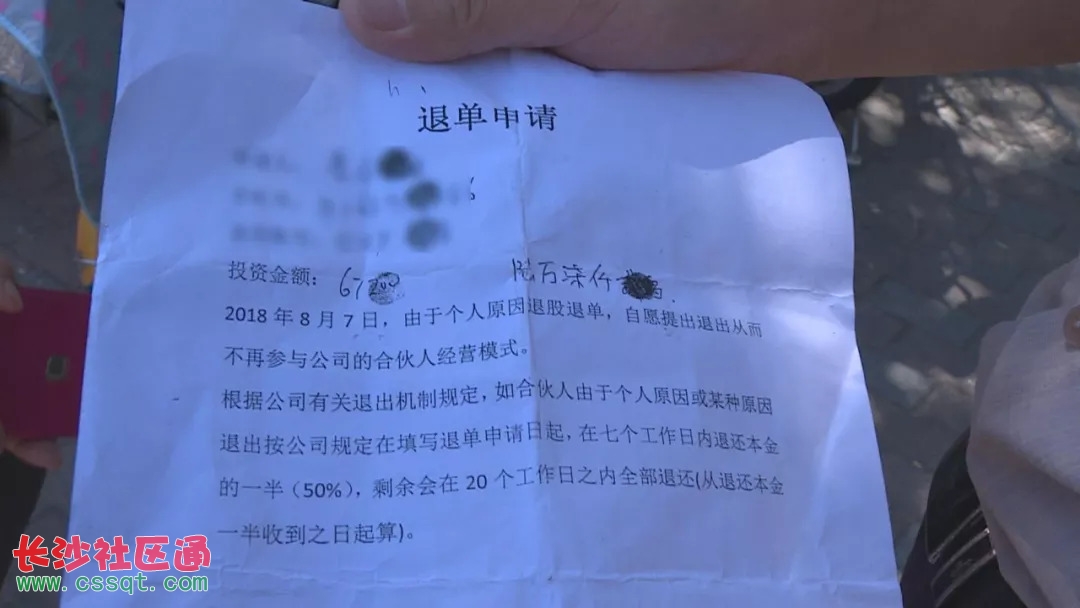 退单申请
投资金额: 67 陆万柒仟
2018 年 8 月 7 日，由于个人原因退股退单，自愿提出退出从而
不再参与公司的合伙人经营模式。
根据公司有关退出机制规定，如合伙人由于个人原因或某种原因
退出按公司规定在填写退单申请日起，在七个工作日内退还本金
的一半（50%），剩余会在 20 个工作日之内全部退还(从退还本金
一半收到之日起算)。
长沙社区通
www.cssqt.com